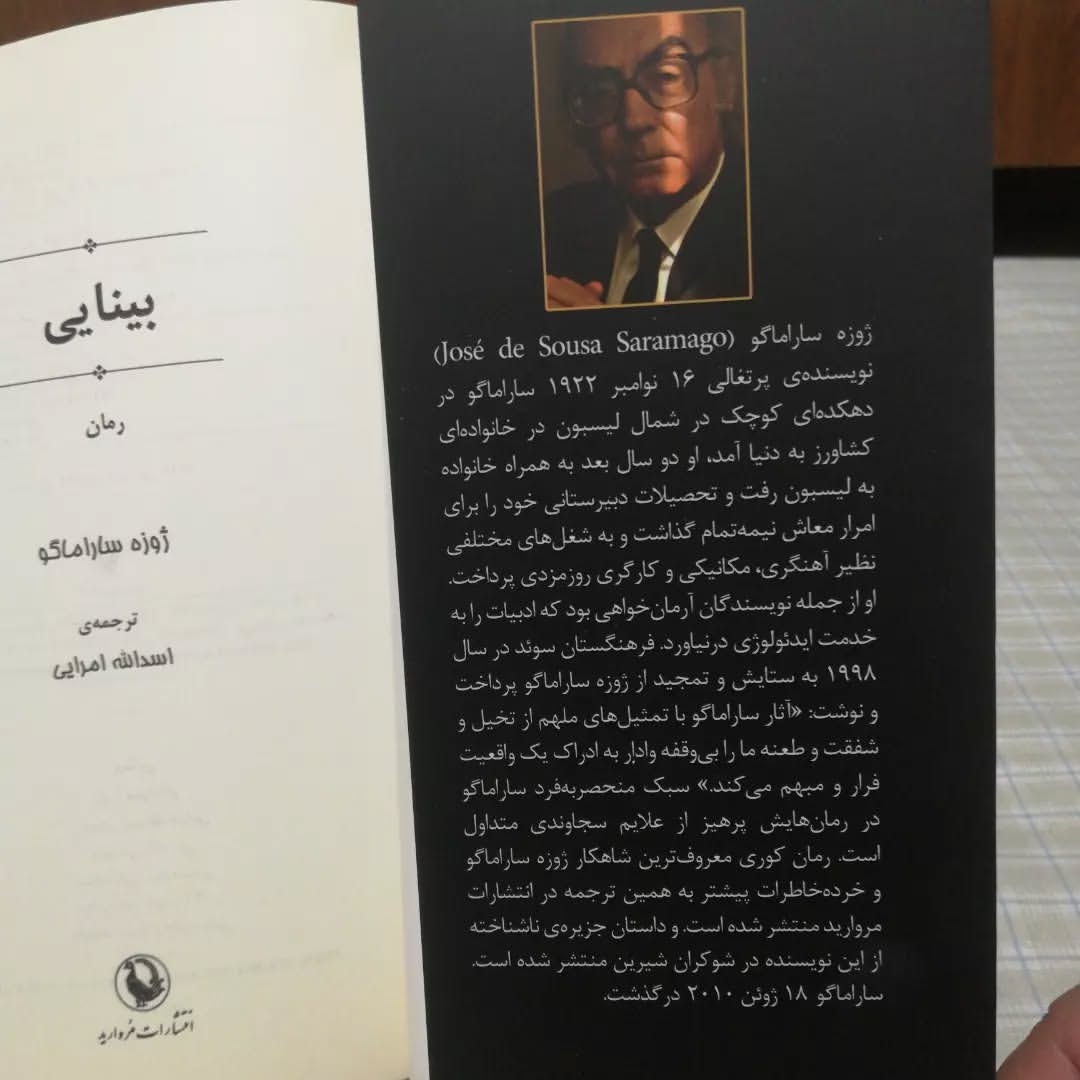 بینایی
رمان
ژوزه ساراماگو
ترجمه‌ی
اسدالله امرایی
انتشارات مروارید
ژوزه ساراماگو (José de Sousa Saramago)
نویسنده‌ی پرتغالی ۱۶ نوامبر ۱۹۲۲ ساراماگو در
دهکده‌ای کوچک در شمال لیسبون در خانواده‌ای
کشاورز به دنیا آمد، او دو سال بعد به همراه خانواده
به لیسبون رفت و تحصیلات دبیرستانی خود را برای
امرار معاش نیمه‌تمام گذاشت و به شغل‌های مختلفی
نظیر آهنگری، مکانیکی و کارگری روزمزدی پرداخت.
او از جمله نویسندگان آرمان‌خواهی بود که ادبیات را به
خدمت ایدئولوژی درنیاورد. فرهنگستان سوئد در سال
۱۹۹۸ به ستایش و تمجید از ژوزه ساراماگو پرداخت
و نوشت: «آثار ساراماگو با تمثیل‌های ملهم از تخیل و
شفقت و طعنه ما را بی‌وقفه وادار به ادراک یک واقعیت
فرار و مبهم می‌کند.» سبک منحصربه‌فرد ساراماگو
در رمان‌هایش پرهیز از علایم سجاوندی متداول
است. رمان کوری معروف‌ترین شاهکار ژوزه ساراماگو
و خرده‌خاطرات پیشتر به همین ترجمه در انتشارات
مروارید منتشر شده است. و داستان جزیره‌ی ناشناخته
از این نویسنده در شوکران شیرین منتشر شده است.
ساراماگو ۱۸ ژوئن ۲۰۱۰ درگذشت.